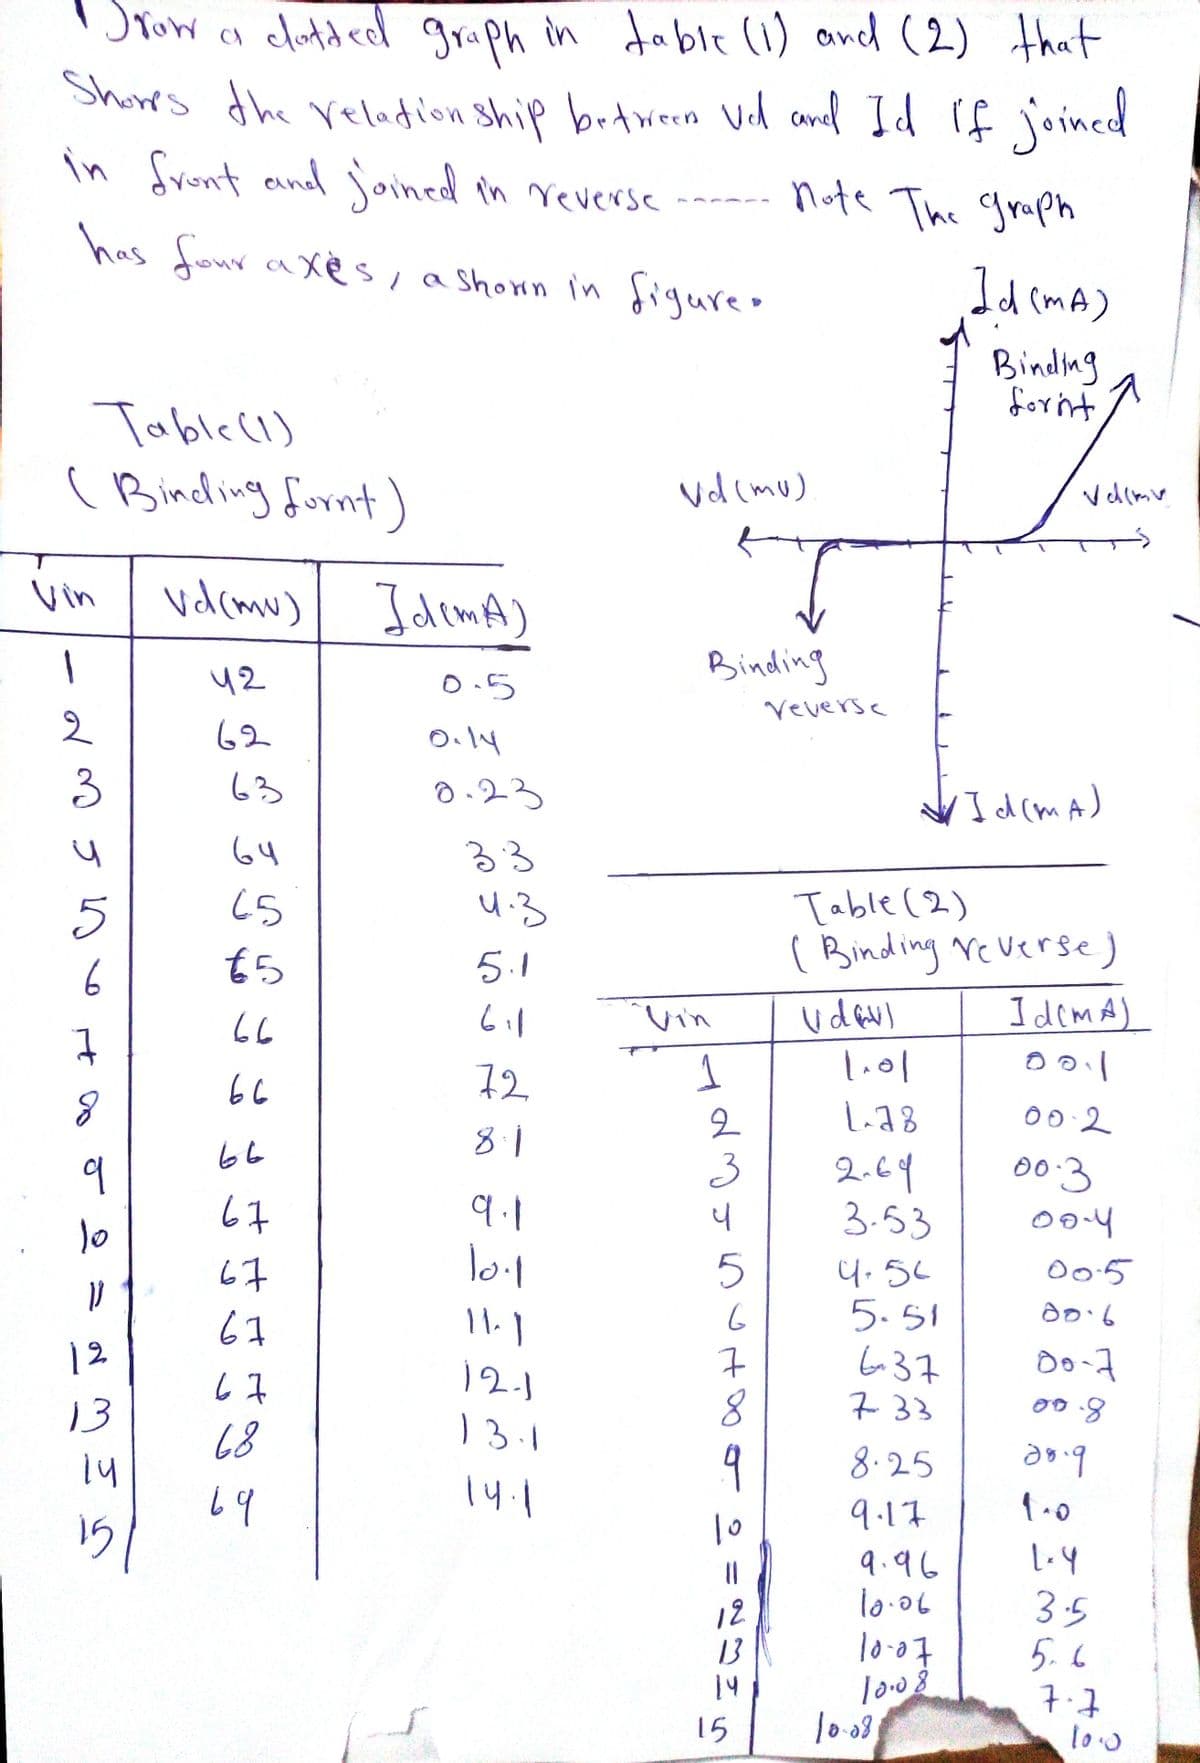 Drow a dotted graph in table (1) and (2) that
Shows the relation ship between Vd and Id if joined
in front and joined in reverse ------ note The graph
has four axes, a shown in figure.
Id (mA)
Binding
fornt
Vd (mv)
Vd(mv
Binding
reverse
Id (mA)
Table (1)
( Binding fornt )
Vin Vd(mv) Id(mA)
1 42 0.5
2 62 0.14
3 63 0.23
4 64 3.3
5 65 4.3
6 65 5.1
7 66 6.1
8 66 72
9 66 8.1
10 67 9.1
11 67 10.1
12 67 11.1
13 67 12.1
14 68 13.1
15 69 14.1
Table (2)
( Binding reverse )
Vin Vd(v) Id(mA)
1 1.01 00.1
2 1.78 00.2
3 2.69 00.3
4 3.53 00.4
5 4.56 00.5
6 5.51 00.6
7 6.37 00.7
8 7.33 00.8
9 8.25 00.9
10 9.17 1.0
11 9.96 1.4
12 10.06 3.5
13 10.07 5.6
14 10.08 7.7
15 10.08 10.0